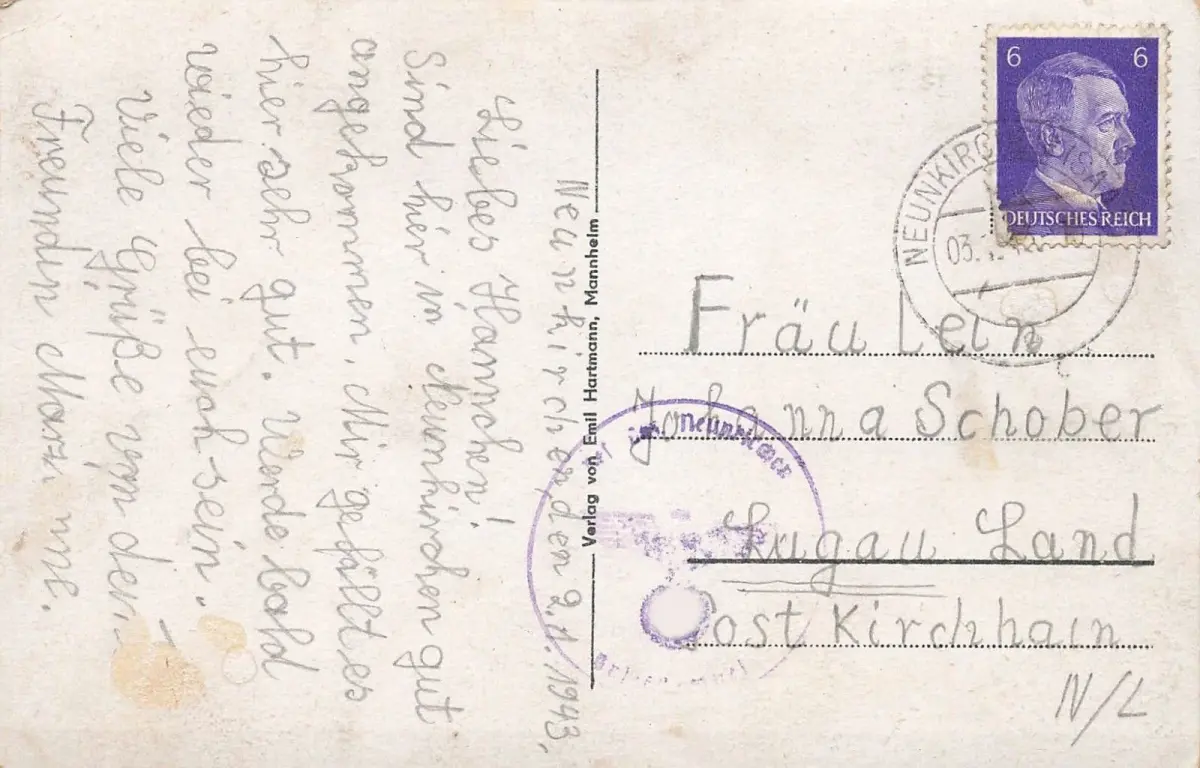 Neunkirchen den 2.1.1943.
Liebes Hannchen!
Sind hier in Neunkirchen gut
angekommen. Mir gefällt es
hier sehr gut. Werde bald
wieder bei euch sein.
Viele Grüße von dein.
Freundin
Verlag von Emil Hartmann, Mannheim
6 6
DEUTSCHES REICH
NEUNKIRCH
03.
Fräulein
Johanna Schober
Lugau Land
Post Kirchhain
N/L
Neunkirchen